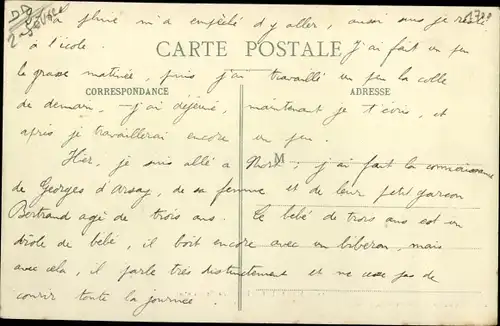 la pluie m'a empêché d'y aller, aussi suis je resté
à l'école.
CARTE POSTALE
J'ai fait un peu
la grasse matinée, puis j'ai travaillé un peu la colle
CORRESPONDANCE
ADRESSE
de demain, - j'ai déjeuné, maintenant je t'écris, et
après je travaillerai encore un peu.
M
Hier, je suis allé à Niort ; j'ai fait la connaissance
de Georges d'Arsay, de sa femme et de leur petit garçon
Bertrand agé de trois ans. Ce bébé de trois ans est un
drôle de bébé, il boit encore avec un biberon, mais
avec cela, il parle très distinctement et ne cesse pas de
courir toute la journée.